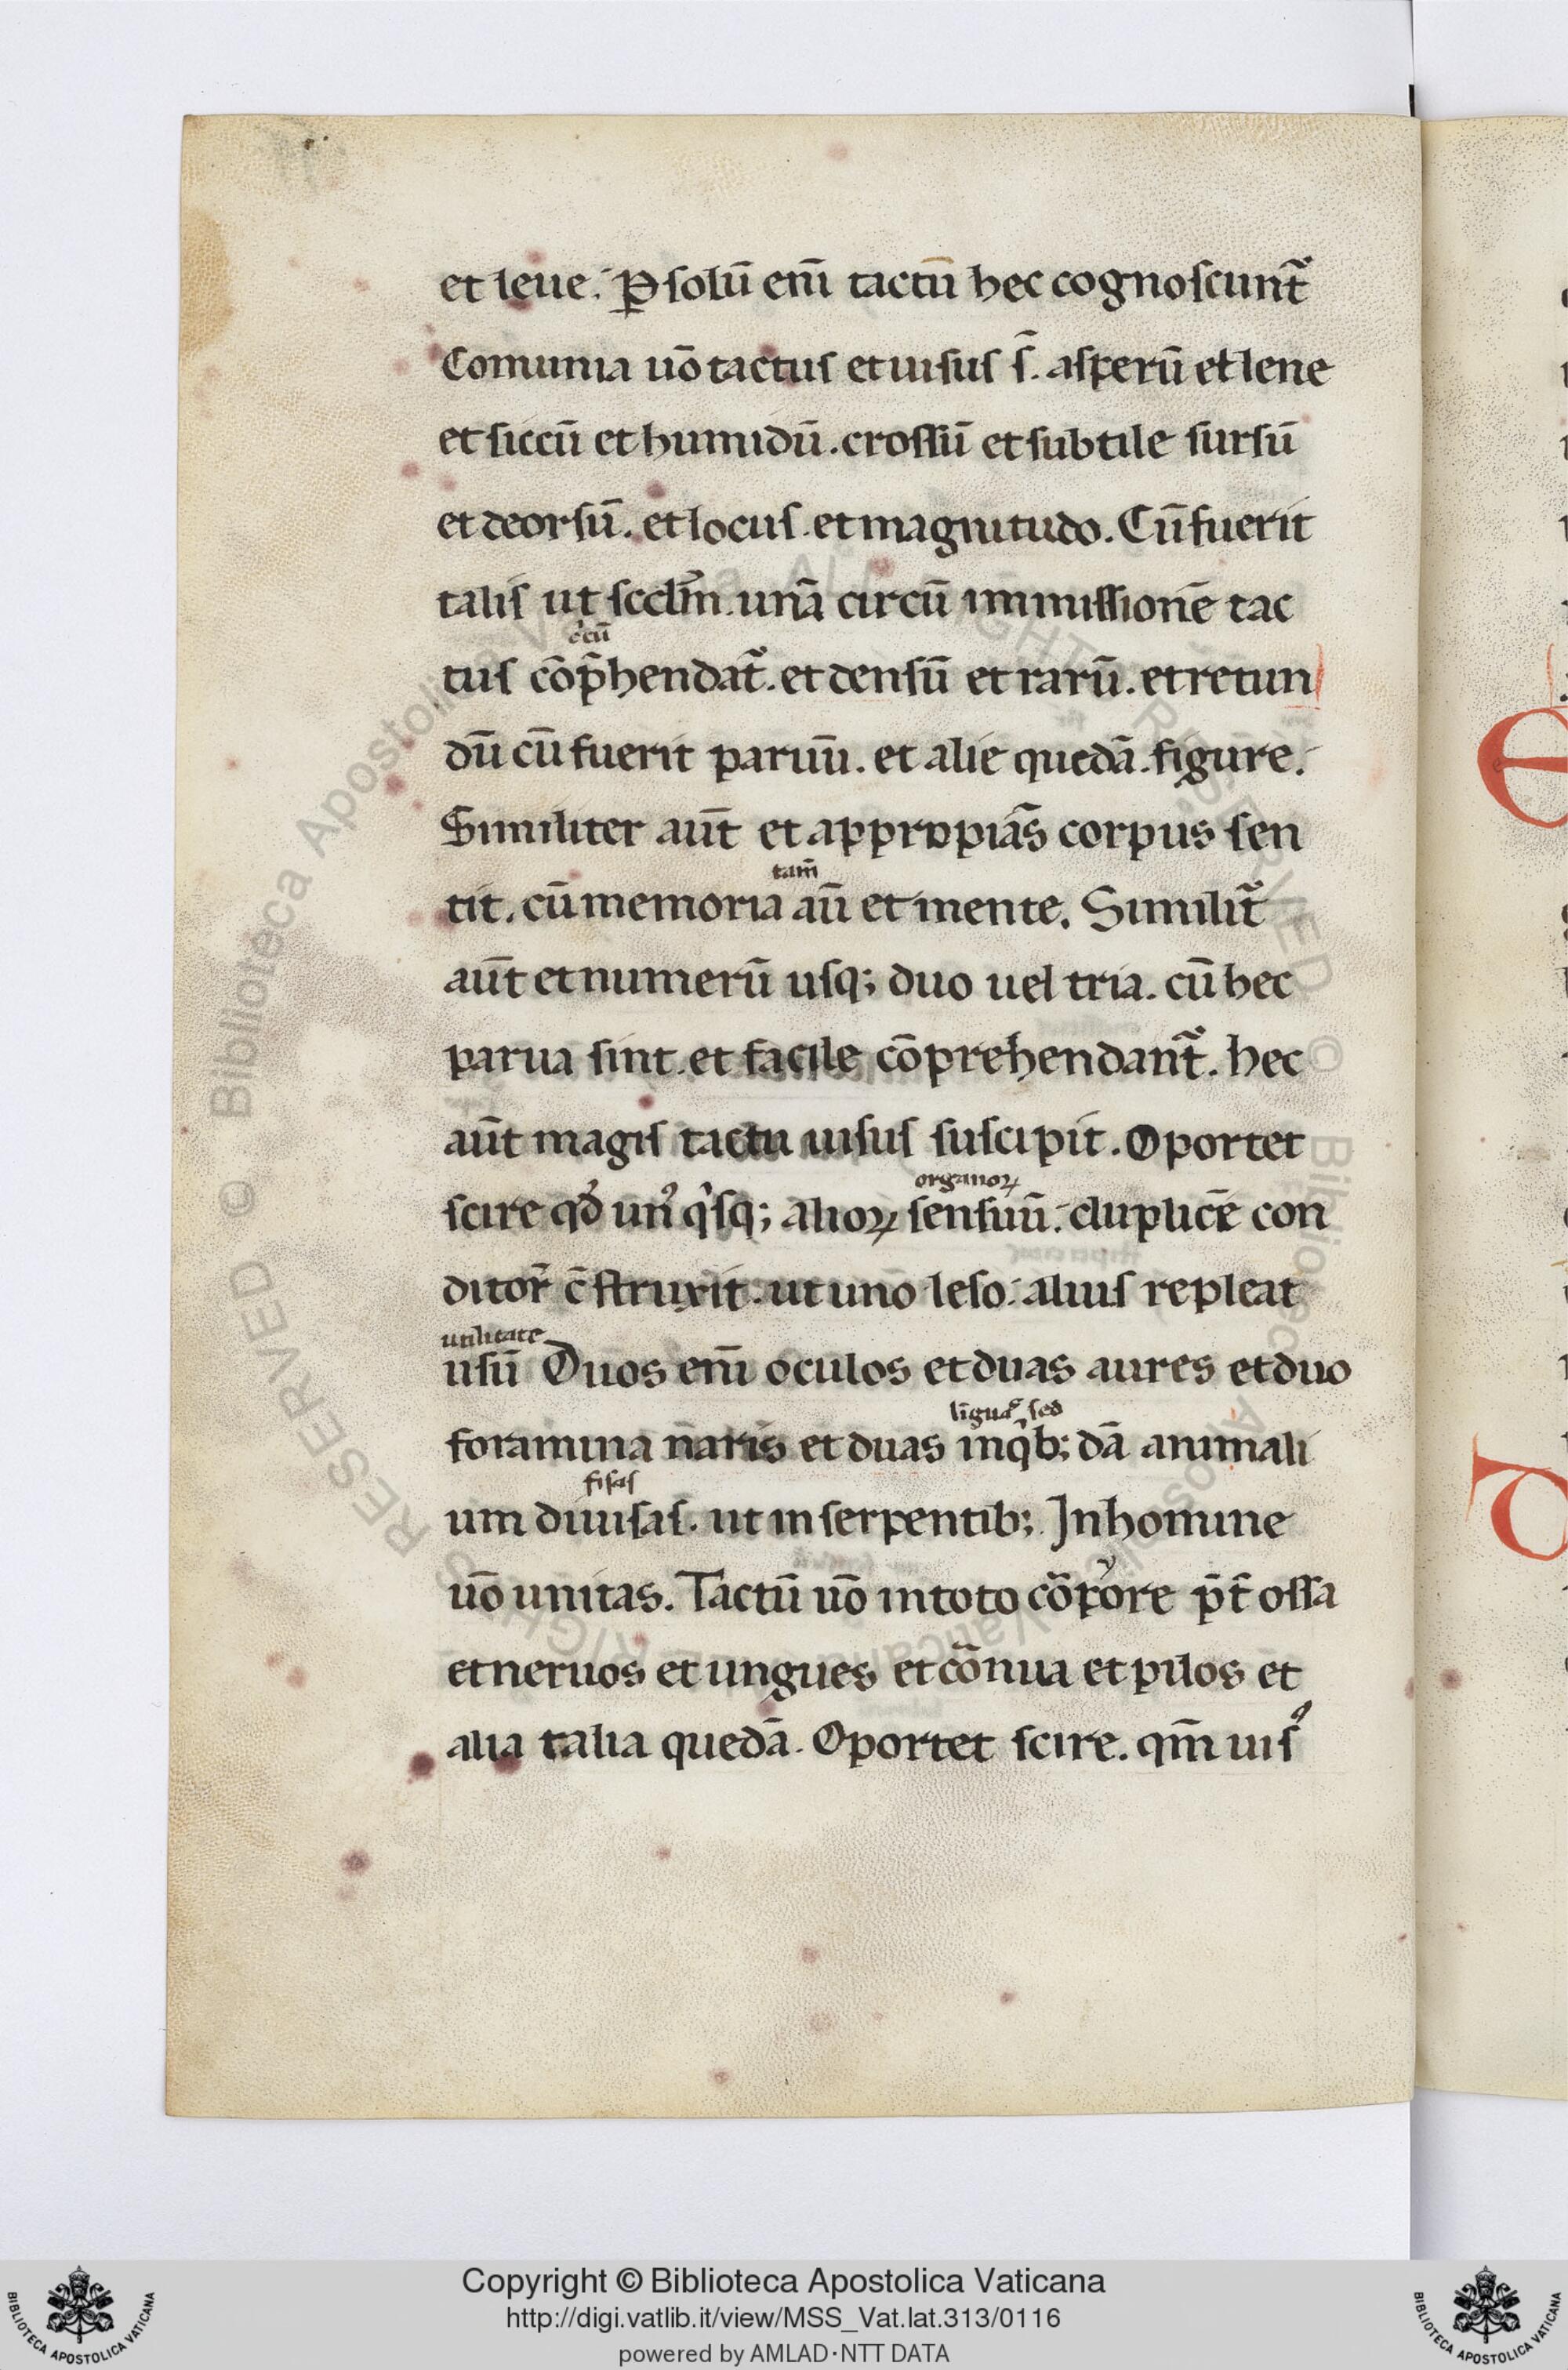 et leue. ꝑ solū enī tactū hec cognoscunt̃
Comunia uō tactus et uisus s̃. asperū et lene
et siccū et humidū. crossū et subtile sursū
et deorsū. et locus. et magnitudo. Cū fuerit
talis ut scdm̄ unā circū immissionē tac
circū
tus cōp̄hendat̃. et densū et rarū. et retun
dū cū fuerit paruū. et alie quedā. figure.
Similiter aūt et appropiās corpus sen
tam̄
tit. cū memoria aū et mente. Similit̃
aūt et numerū usq; duo uel tria. cū hec
parua sint. et facile cōprehendant̃. hec
aūt magis tactu uisus suscipit. Oportet
organoꝝ
scire qd̓ unꝰ qͥsq; alioꝝ sensuū. duplicē con
ditor c̄struxit. ut uno leso. alius repleat
utilitatē
usū Duos enī oculos et duas aures et duo
linguas sed
foramina naris et duas inqͥb; dā animali
fisas
um diuisas. ut in serpentib; In homine
uō unitas. Tactū uō in toto cōrpore p̄t ossa
et neruos et ungues et cornua et pilos et
alia talia quedā. Oportet scire. qm̄ uisꝰ
Copyright © Biblioteca Apostolica Vaticana
http://digi.vatlib.it/view/MSS_Vat.lat.313/0116
powered by AMLAD·NTT DATA
BIBLIOTECA APOSTOLICA VATICANA
BIBLIOTECA APOSTOLICA VATICANA